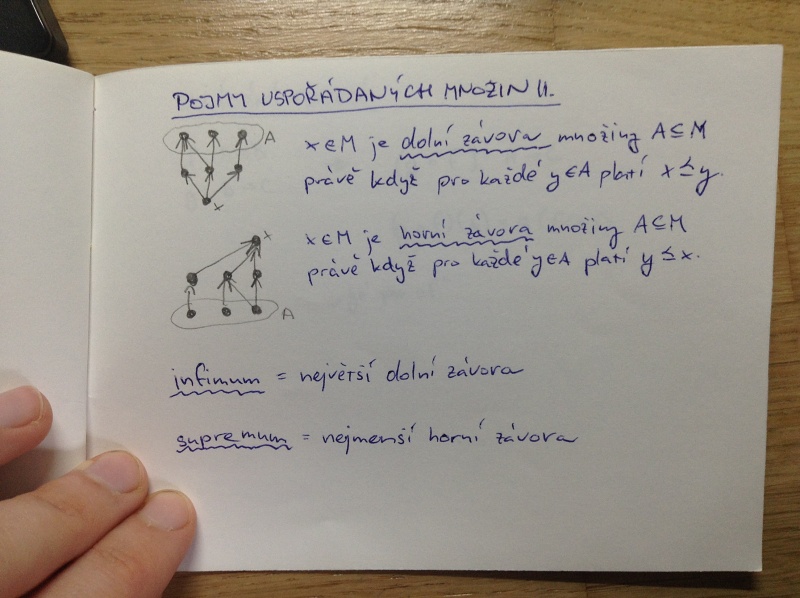 POJMY USPOŘÁDANÝCH MNOŽIN II.
A
x∈M je dolní závora množiny A⊆M
právě když pro každé y∈A platí x≤y.
x
x
x∈M je horní závora množiny A⊆M
právě když pro každé y∈A platí y≤x.
A
infimum = největší dolní závora
supremum = nejmenší horní závora